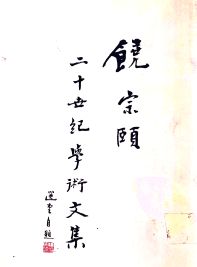 饒宗頤
二十世紀學術文集
選堂自題